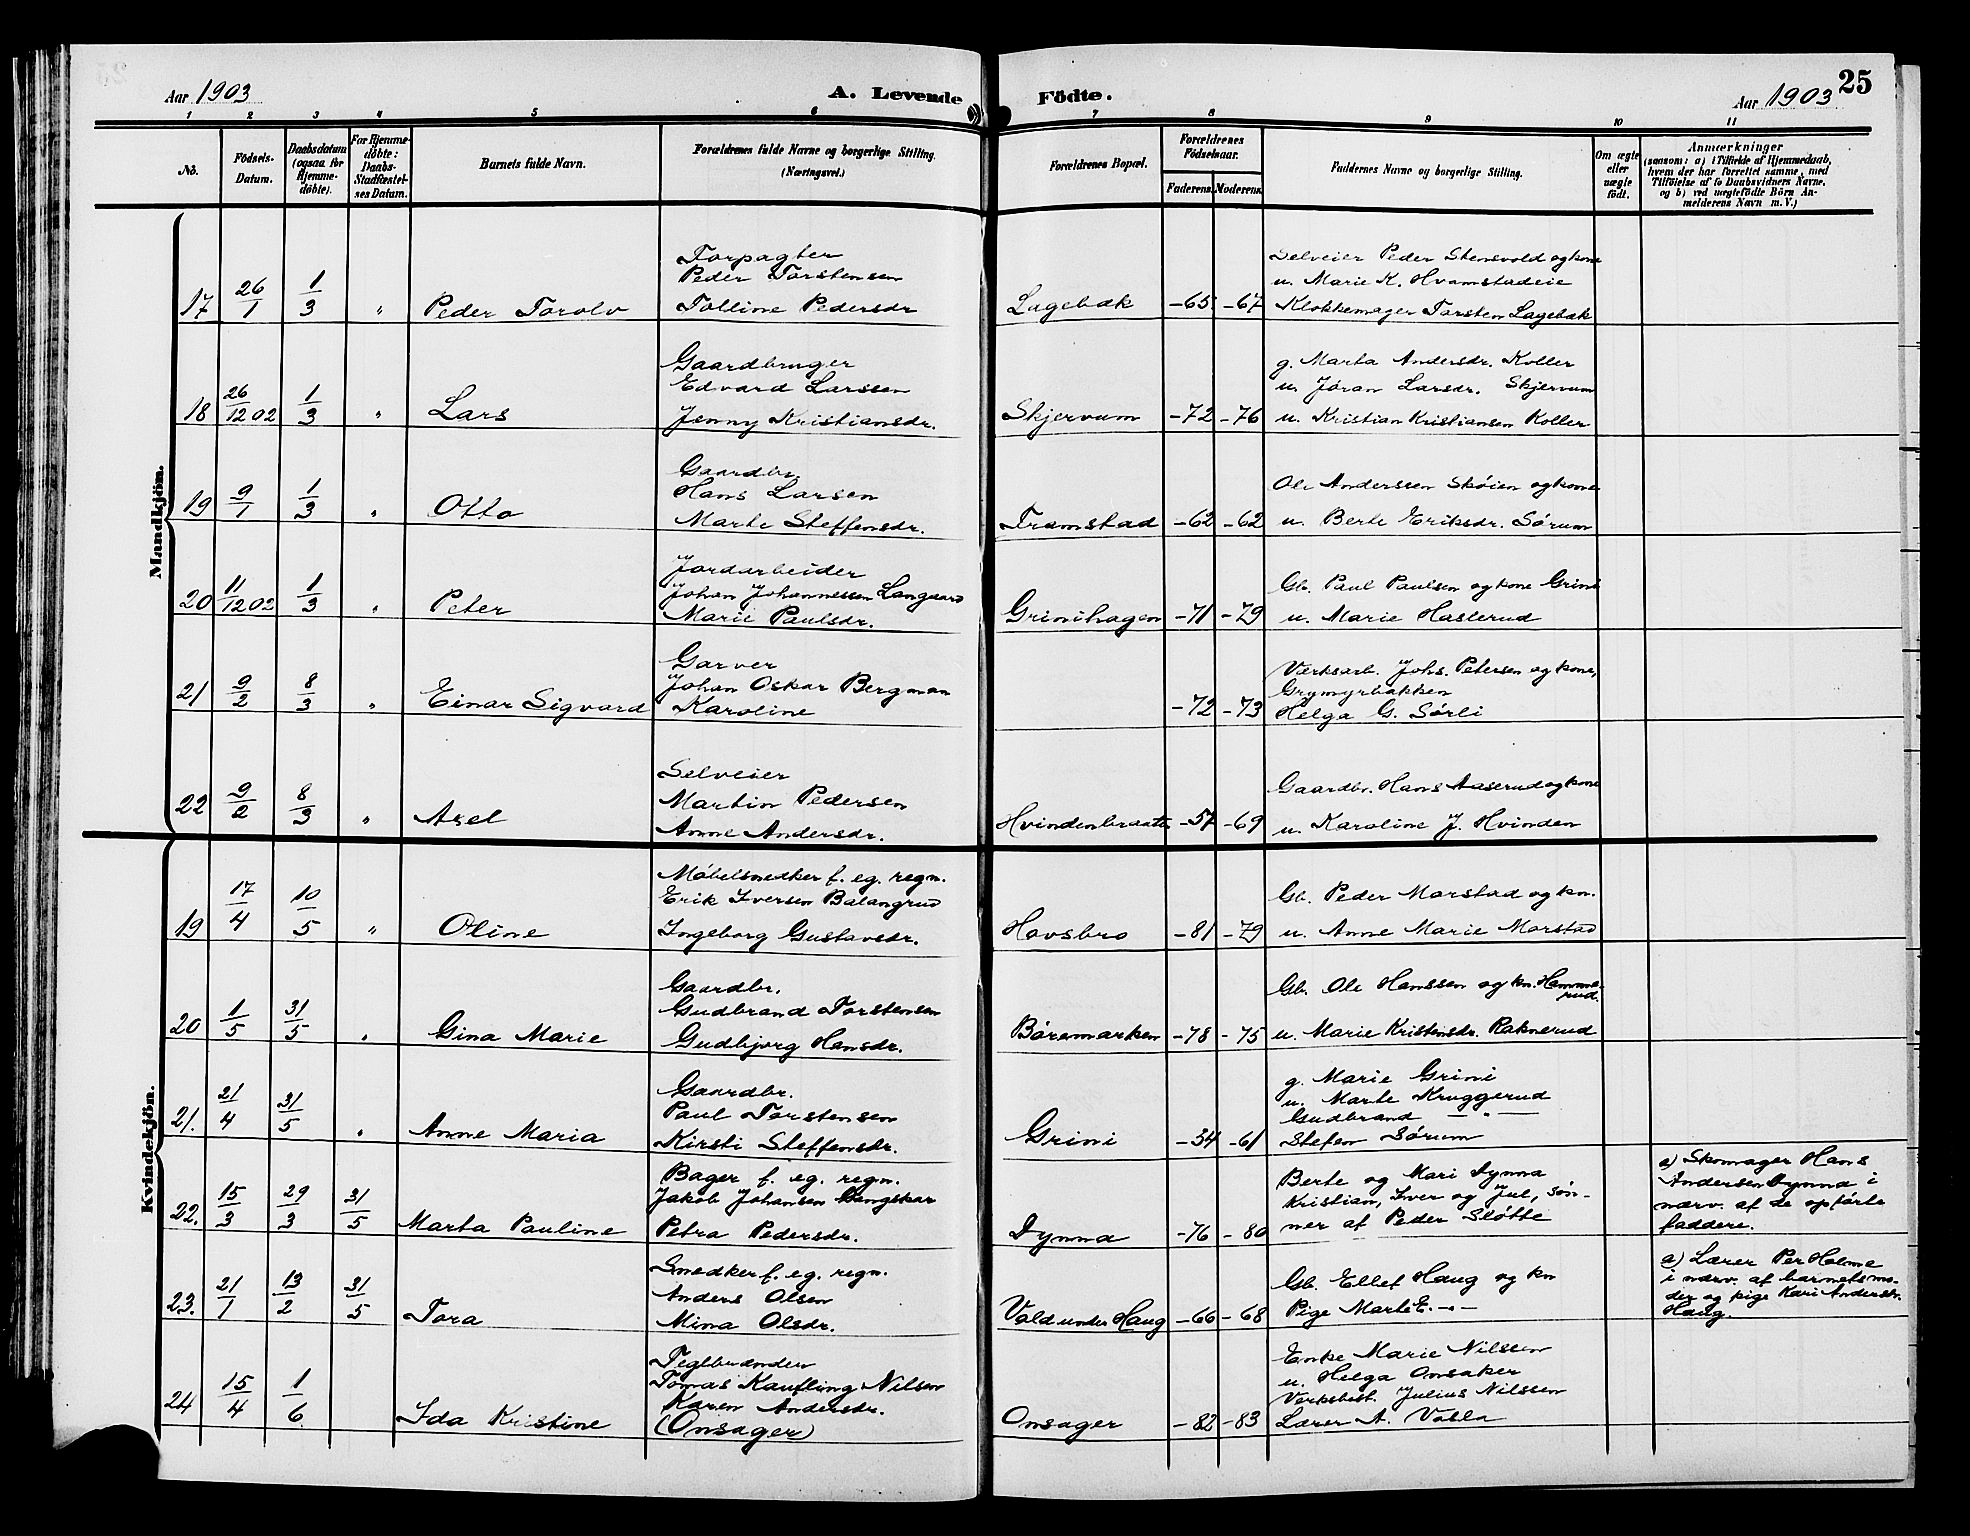 Aar 1903
A. Levende Födte.
Aar 1903
25
1 2 3 4 5 6 7 8 9 10 11
No.
Födsels-
Datum.
Daabsdatum
(ogsaa for
Hjemme-
döbte).
For Hjemme-
döbte:
Daabs-
Stadfæstel-
ses Datum.
Barnets fulde Navn.
Forældrenes fulde Navne og borgerlige Stilling.
(Næringsvei.)
Forældrenes Bopæl.
Forældrenes
Födselsaar.
Faderens. Moderens.
Faddernes Navne og borgerlige Stilling.
Om ægte
eller
uægte
födt.
Anmærkninger
(saasom: a) i Tilfælde af Hjemmedaab,
hvem der har forrettet samme, med
Tilföielse af to Daabsvidners Navne,
og b) ved uægtefödte Börn An-
melderens Navn m. V.)
Mandkjön.
17 26/1 1/3 " Peder Torolv
Forpagter
Peder Torstensen
Tolline Pedersdr
Lagebæk -65 -67
Selveier Peder Stensvold og kone
u. Marie K. Hvamstadeie
Klokkemager Torsten Lagebæk
18 26/12 02 1/3 " Lars
Gaardbruger
Edvard Larssen
Jenny Kristiansdr.
Skjervum -72 -76
g. Marta Andersdr. Koller
u. Jøran Larsdr. Skjervum
u. Kristian Kristiansen Koller
19 9/1 1/3 " Otto
Gaardbr
Hans Larsen
Marte Steffensdr.
Framstad -62 -62
Ole Anderssen Skøien og kone
u. Berte Eriksdr. Sørum
20 11/12 02 1/3 " Peter
Jordarbeider
Johan Johannessen Langaard
Marie Paulsdr.
Grinihagen -71 -79
Gb. Paul Paulsen og kone Grini
u. Marie Haslerud
21 9/2 8/3 " Einar Sigvard
Garver
Johan Oskar Bergman
Karoline
-72 -73
Værksarb. Johs. Petersen og kone,
Grymyrbakken
Helga G. Sørli
22 9/2 8/3 " Axel
Selveier
Martin Pedersen
Anne Andersdr.
Hvindenbraaten -57 -69
Gaardbr. Hans Aaserud og kone
u. Karoline J. Hvinden
Kvindekjön.
19 17/4 10/5 " Oline
Møbelsnedker f. eg. regn.
Erik Iversen Balangrud
Ingeborg Gustavsdr.
Hovsbro -81 -79
Gb. Peder Morstad og kn.
u. Anne Marie Morstad
20 1/5 31/5 " Gina Marie
Gaardbr.
Gudbrand Torstensen
Gudbjørg Hansdr.
Børsmarken -78 -75
Gb. Ole Hanssen og kn. Hamme-
rud.
u. Marie Kristensdr. Raknerud
21. 21/4 31/5 " Anne Maria
Gaardbr.
Paul Torstensen
Kirsti Steffensdr.
Grini -34 -61
g. Marie Grini
u. Marte Kruggerud
Gudbrand — " —
Stefen Sørum
22. 15/3 29/3 31/5 Marta Pauline
Bager f. eg. regn.
Jakob Johansen
Petra Pedersdr.
Dynna -76 -80
Berte og Mari Dynna
Kristian, Iver og Jul, søn-
ner af Peder Sløtte
a) Skomager Hans
Andersen Dynna i
nærv. af de opførte
faddere.
23. 21/1 13/2 31/5 Tora
Snedker f. eg. regn.
Anders Olsen
Mina Olsdr.
Vold under Haug -66 -68
Gb. Ellef Haug og kn
Pige Marte E. -"-
a) Lærer Per Holme
i nærv. af barnets mo-
der og pige Kari Andersdr.
Haug.
24 15/4 1/6 Ida Kristine
Teglbrænder
Tomas Kaufling Nilsen
Karen Andersdr.
(Onsager)
Onsager -82 -83
Enke Marie Nilssen
u. Helga Onsaker
Verksbest. Julius Nilssen
Lærer A. Valla